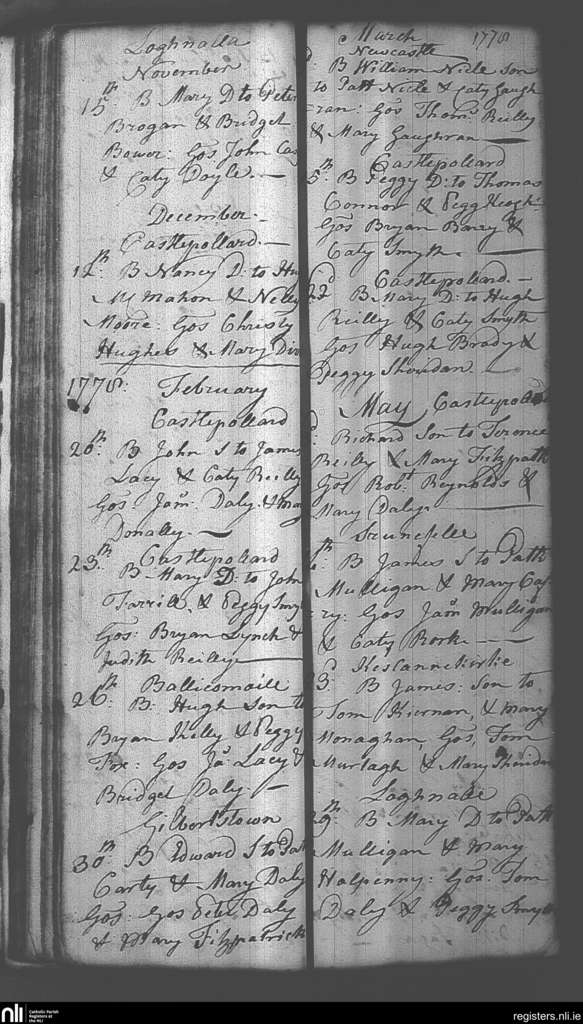 Loghnaila
November
15th. B Mary D to Peter
Brogan & Bridget
Bower: Gos John Cas
& Caty Doyle. —
December. —
Castlepollard. —
12th B Nancy D: to Hu
Mc Mahon & Nelly
Moore: Gos Christy
Hughes & Mary Div
1778: February
Castlepollard
20th: B John S to James
Lacy & Caty Reilly
Gos: Jams. Daly & Ma
Donally. —
23th. Castlepollard
B Mary D: to John
Farrill, & Peggy Smy
Gos: Bryan Lynch &
Judith Reilly —
Ballicomaile
26th. B: Hugh Son to
Bryan Skelly & Peggy
Fox: Gos Jas Lacy &
Bridget Daly. —
Gilbertstown
30th. B Edward S to Pat
Carty & Mary Daly
Gos: Gos Peter Daly
& Mary Fitzpatrick
March 1778
Newcastle
B William Nicle Son
to Patt Nicle & Caty Gaugh
ran: Gos Thoms. Reilly
& Mary Gaughran —
Castlepollard
5th. B Peggy D: to Thomas
Connor & Pegg Keogh
Gos Bryan Barry &
Caty Smyth. —
Castlepollard. —
22d B Mary D: to Hugh
Reilly & Caty Smyth
Gos Hugh Brady &
Peggy Sheridan —
May Castlepollard
d. Richard Son to Terence
Reilly & Mary Fitzpatk
Gos Robt. Reynolds &
Mary Daly. —
th. B James S to Patk
Mulligan & Mary Caf
ry: Gos Jams Mulligan
& Caty Rork —
3d. B James: Son to
Tom Kiernan, & Mary
Monaghan, Gos, Tom
Murtagh, & Mary Sheridan
Loghnaile
29th. B Mary D to Patk
Mulligan & Mary
Halpenny: Gos: Tom
Daly & Peggy Smyth
nli
Catholic Parish
Registers at
the NLI
registers.nli.ie